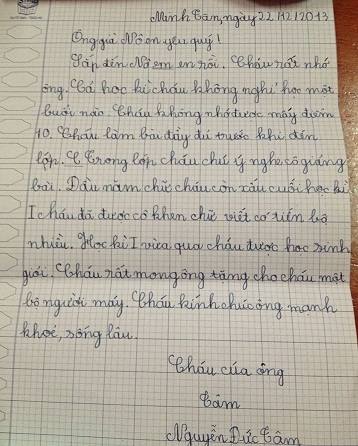 Minh Tân, ngày 22/12/2013
Ông già Nô en yêu quý!
Sắp đến Nô em en rồi. Cháu rất nhớ
ông. Cả học kì cháu không nghỉ học một
buổi nào. Cháu không nhớ được mấy điểm
10. Cháu làm bài đầy đủ trước khi đến
lớp. Ở Trong lớp cháu chú ý nghe cô giảng
bài. Đầu năm chữ cháu còn xấu cuối học kì
I cháu đã được cô khen chữ viết có tiến bộ
nhiều. Học kì I vừa qua cháu được học sinh
giỏi. Cháu rất mong ông tặng cho cháu một
bộ người máy. Cháu kính chúc ông mạnh
khoẻ, sống lâu.
Cháu của ông
Tâm
Nguyễn Đức Tâm